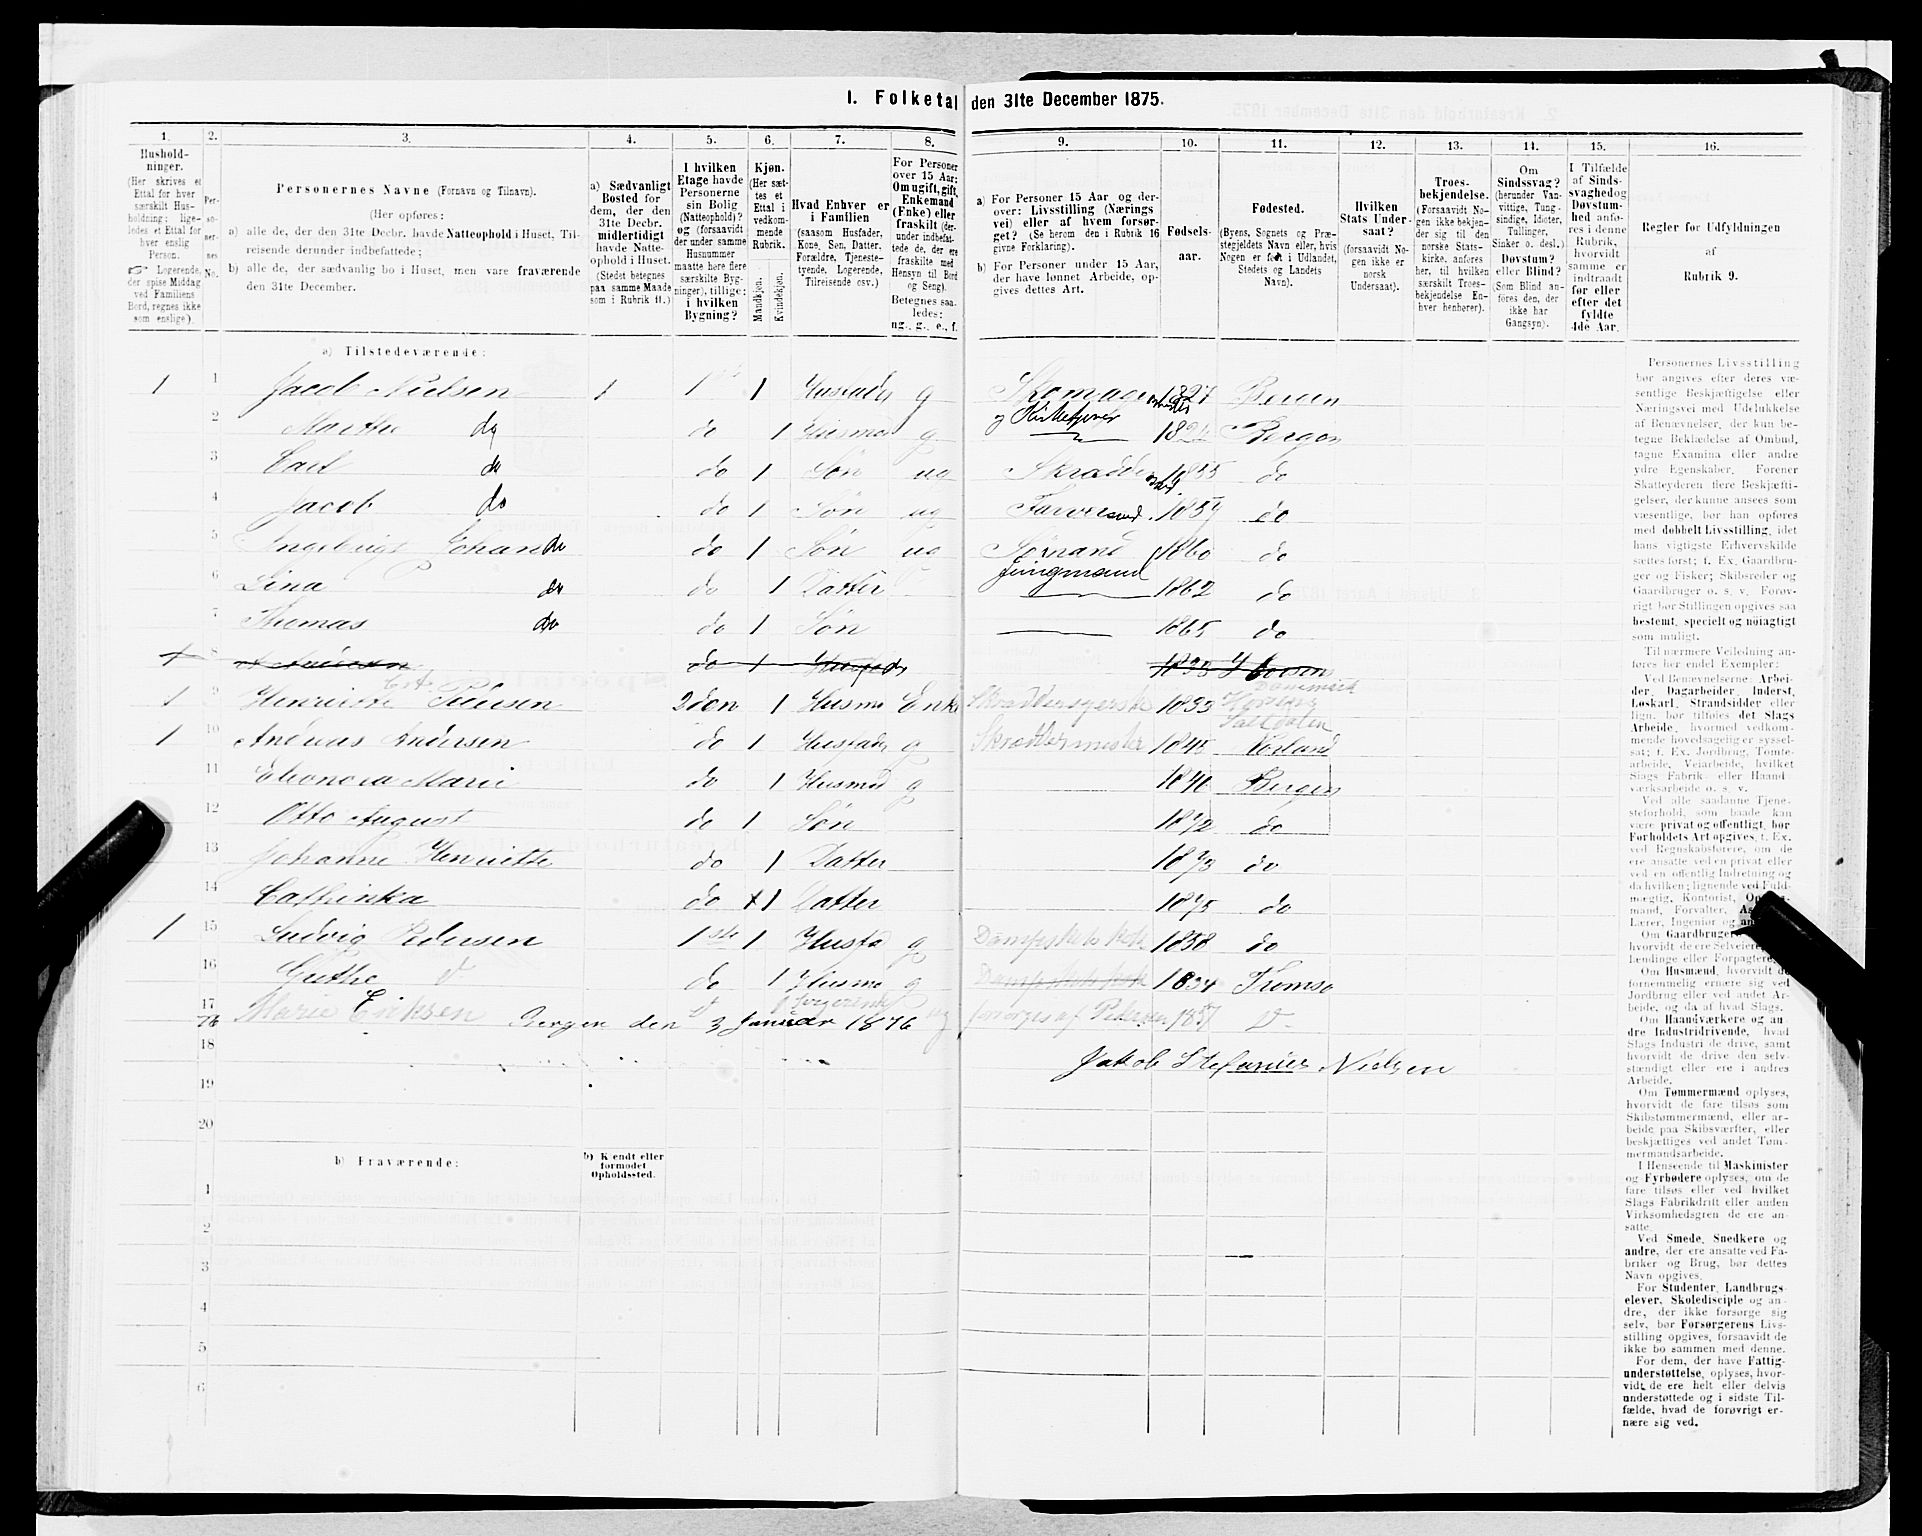 I. Folketal den 31te December 1875.
1. 2. 3. 4. 5. 6. 7. 8. 9. 10. 11. 12. 13. 14. 15. 16.
Hushold-
ninger.
(Her skrives et
Ettal for hver
særskilt Hus-
holdning; lige-
ledes et Ettal for
hver enslig
Person.
☞ Logerende,
der spise Middag
ved Familiens
Bord, regnes ikke
som enslige).
Per-
so-
ner-
nes
No.
Personernes Navne (Fornavn og Tilnavn).
(Her opføres:
a) alle de, der den 31te Decbr. havde Natteophold i Huset, Til-
reisende derunder indbefattede;
b) alle de, der sædvanlig bo i Huset, men vare fraværende
den 31te December.
a) Sædvanligt
Bosted for
dem, der den
31te Decbr.
midlertidigt
havde Natte-
ophold i Huset.
(Stedet betegnes
paa samme Maade
som i Rubrik 11.)
I hvilken
Etage havde
Personerne
sin Bolig
(Natteophold)?
og (forsaavidt
der under samme
Husnummer
maatte høre flere
særskilte Byg-
ninger), tillige:
i hvilken
Bygning?
Kjøn.
(Her sæt-
tes et
Ettal i
vedkom-
mende
Rubrik.
Mandkjøn.
Kvindekjøn.
Hvad Enhver er
i Familien
(saasom Husfader,
Kone, Søn, Datter.
Forældre, Tjeneste-
tyende, Logerende,
Tilreisende osv.)
For Personer
over 15 Aar:
Om ugift, gift,
Enkemand
(Enke) eller
fraskilt (der-
under indbefat-
tede de, der ere
fraskilte med
Hensyn til Bord
og Seng).
Betegnes saa-
ledes:
ug., g., e., f.
a) For Personer 15 Aar og der-
over: Livsstilling (Nærings
vei) eller af hvem forsør-
get? (Se herom den i Rubrik 16
givne Forklaring).
b) For Personer under 15 Aar,
der have lønnet Arbeide, op-
gives dettes Art.
Fødsels-
aar.
Fødested.
(Byens, Sognets og Præ-
stegjeldets Navn eller, hvis
Nogen er født i Udlandet,
Stedets og Landets
Navn).
Hvilken
Stats Under-
saat?
(forsaavidt No-
gen ikke er
norsk
Undersaat).
Troes-
bekjendelse.
(Forsaavidt No-
gen ikke bekjen-
der sig til den
norske Stats-
kirke, anføres
her, til hvilken
særskilt Troes-
bekjendelse En-
hver henhører).
Om
Sindssvag?
(herunder Van-
vittige, Tung-
sindige, Idioter,
Tullinger,
Sinker o. desl.)
Døvstum?
eller Blind?
(Som Blind an-
føres den, der
ikke har
Gangsyn).
I Tilfælde
af Sinds-
svaghed og
Døvstum-
hed anfø-
res i denne
Rubrik,
hvorvidt
samme er
indtraadt
før eller
efter det
fyldte
4de Aar.
Regler for Udfyldningen
af
Rubrik 9.
a) Tilstedeværende:
1 1 Jacob Nielsen 1 Husfader g Skomager 1827 Bergen
2 Marthe do do 1 Husmo g Bergen
3 Carl do do 1 Søn ug Skrædder 1855 do
4 Jacob do do 1 Søn ug Farver 1857 do
5 do do 1 Søn ug Sømand 1860 do
Jungmand
6 Lina do do 1 Datter 1862 do
7 Thomas do do 1 Søn 1865 do
1 8 do 1 1835
Danmark
1 9 Henriette Pedersen 2den 1 Husmo Enke Skræddersyerske 1833
Saltdalen
1 10 Andreas Andersen do 1 Husfader g Skræddermester 1845 Norland
11 Eleonora Marie do 1 Husmod g 1840 Bergen
12 Otto August do 1 Søn 1872 do
13 Johanne Henriette do 1 Datter 1873 do
14 Cathinka do 1 Datter 1875 do
1 15 Ludvig Pedersen 1ste 1 Husfa g Dampskibs Kok 1838 do
16 Grethe do 1 Husmo g Dampskibs Kok 1834 Tromsø
17 Marie Eriksen 1 Logerende ug forsørges af Pedersen
Bergen den 3 Januar 1876
18
Jakob Stefanus Nielsen
19
20
b) Fraværende:
b) Kjendt eller
formodet
Opholdssted.
1
2
3
4
5
6
Personernes Livsstilling
bør angives efter deres væ-
sentlige Beskjæftigelse eller
Næringsvei med Udelukkelse
af Benævnelser, der kun be-
tegne Beklædelse af Ombud,
tagne Examina eller andre
ydre Egenskaber. Forener
Skatteyderen flere Beskjæfti-
gelser, der kunne ansees som
væsentlige, bør han opføres
med dobbelt Livsstilling, idet
hans vigtigste Erhvervskilde
sættes først; f. Ex. Gaardbru-
ger og Fisker; Skibsreder og
Gaardbruger o. s. v. Forøv-
rigt bør Stillingen opgives saa
bestemt, specielt og nøiagtigt
som muligt.
Til nærmere Veiledning an-
føres her endel Exempler:
Ved Benævnelserne: Arbei-
der, Dagarbeider, Inderst,
Løskarl, Strandsidder eller
lign. bør tilføies det Slags
Arbeide, hvormed vedkom-
mende hovedsagelig er syssel-
sat; f. Ex. Jordbrug, Tomte-
arbeide, Veiarbeide, hvilket
Slags Fabrik- eller Haand-
værksarbeide o. s. v.
Ved alle saadanne Tjene-
steforhold, som baade kan
være privat og offentligt, bør
Forholdets Art opgives, f. Ex.
ved Regnskabsførere, om de
ere ansatte ved en privat eller
ved en offentlig Indretning og
da hvilken; lignende ved Fuld-
mægtig, Kontorist,
mand, Forvalter,
Lærer, Ingeniør og
Om Gaardbruger
hvorvidt de ere Selveiere,
Lændinge eller Forpagtere.
Om Husmænd, hvorvidt de
fornemmelig ernære sig ved
Jordbrug eller ved andet Ar-
beide, og da af hvad Slags.
Om Haandværkere og an-
dre Industridrivende, hvad
Slags Industri de drive, samt
hvorvidt de drive den selv-
stændigt eller ere i andres
Arbeide.
Om Tømmermænd oplyses,
hvorvidt de fare tilsøs som
Skibstømmermænd, eller ar-
beide paa Skibsværfter, eller
beskjæftiges ved andet Tøm-
mermandsarbeide.
I Henseende til Maskinister
og Fyrbødere oplyses, om de
fare tilsøs eller ved hvilket
Slags Fabrikdrift eller anden
Virksomhedsgren de ere an-
satte.
Ved Smede, Snedkere og
andre, der ere ansatte ved Fa-
briker og Brug, bør dettes
Navn opgives.
For Studenter, Landbrugs-
elever, Skoledisciple og an-
dre, der ikke forsørge sig
selv, bør Forsørgerens Livs-
stilling opgives, forsaavidt de
ikke bo sammen med denne.
For dem, der have Fattig-
understøttelse, oplyses, hvor-
vidt de ere helt eller delvis
understøttede og i sidste Til-
fælde, hvad de forøvrigt er-
nære sig ved.